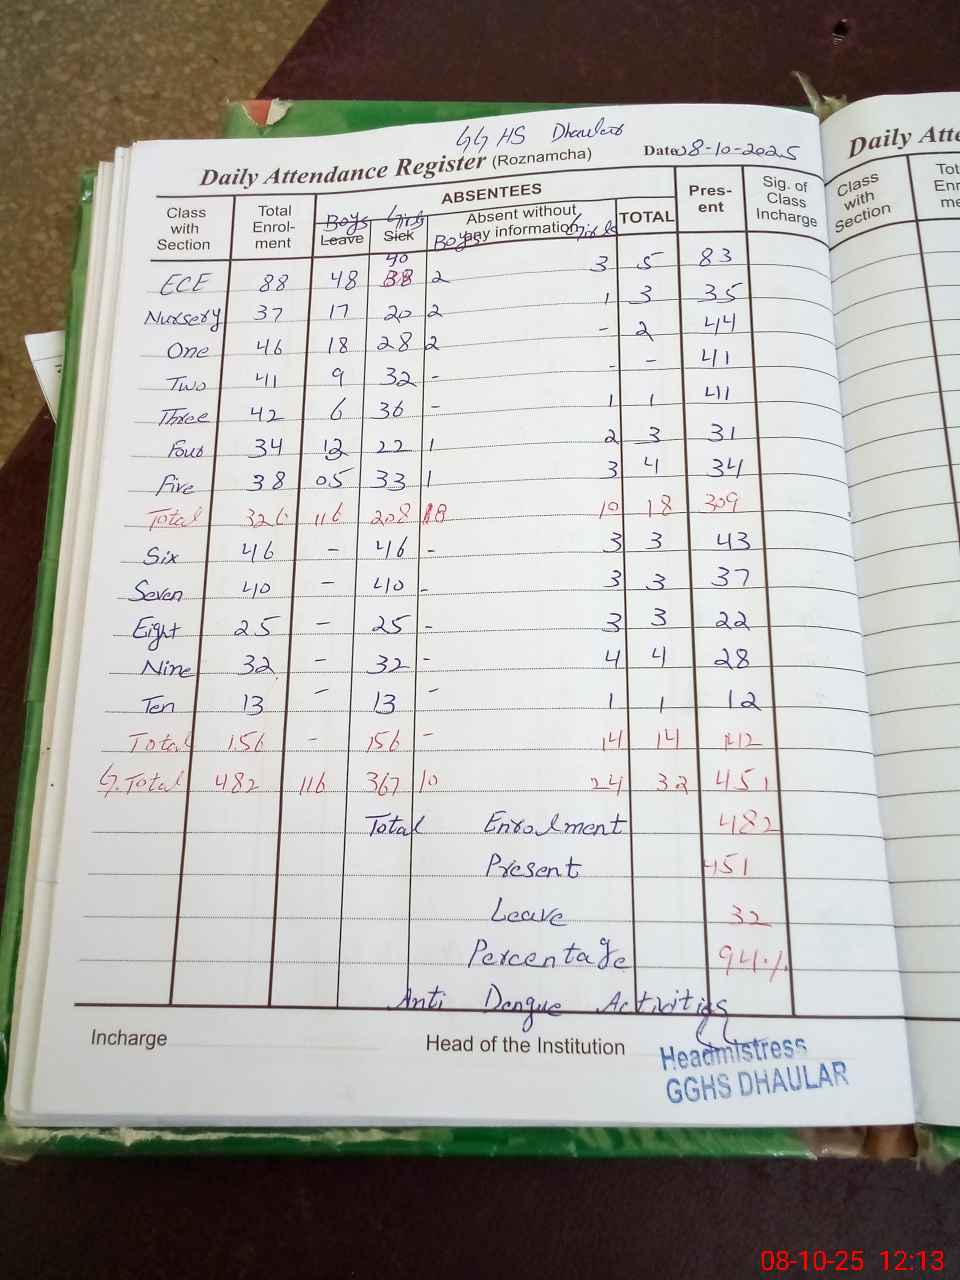 GGHS Dhaular
Daily Attendance Register (Roznamcha) Date 08-10-2025
Class with Section Total Enrol-ment ABSENTEES Pres-ent Sig. of Class Incharge
Boys Leave Girls Sick Absent without any information Boys Girls TOTAL
ECE 88 48 40 38 2 3 5 83
Nursery 37 17 20 2 1 3 35
One 46 18 28 2 - 2 44
Two 41 9 32 - - - 41
Three 42 6 36 - 1 1 41
Four 34 12 22 1 2 3 31
Five 38 05 33 1 3 4 34
Total 326 116 208 8 10 18 309
Six 46 - 46 - 3 3 43
Seven 40 - 40 - 3 3 37
Eight 25 - 25 - 3 3 22
Nine 32 - 32 - 4 4 28
Ten 13 - 13 - 1 1 12
Total 156 - 156 - 14 14 142
G.Total 482 116 367 10 24 32 451
Total Enrolment 482
Present 451
Leave 32
Percentage 94%
Anti Dengue Activities
Incharge Head of the Institution
Headmistress
GGHS DHAULAR
Daily Atte
Class with Section
08-10-25 12:13